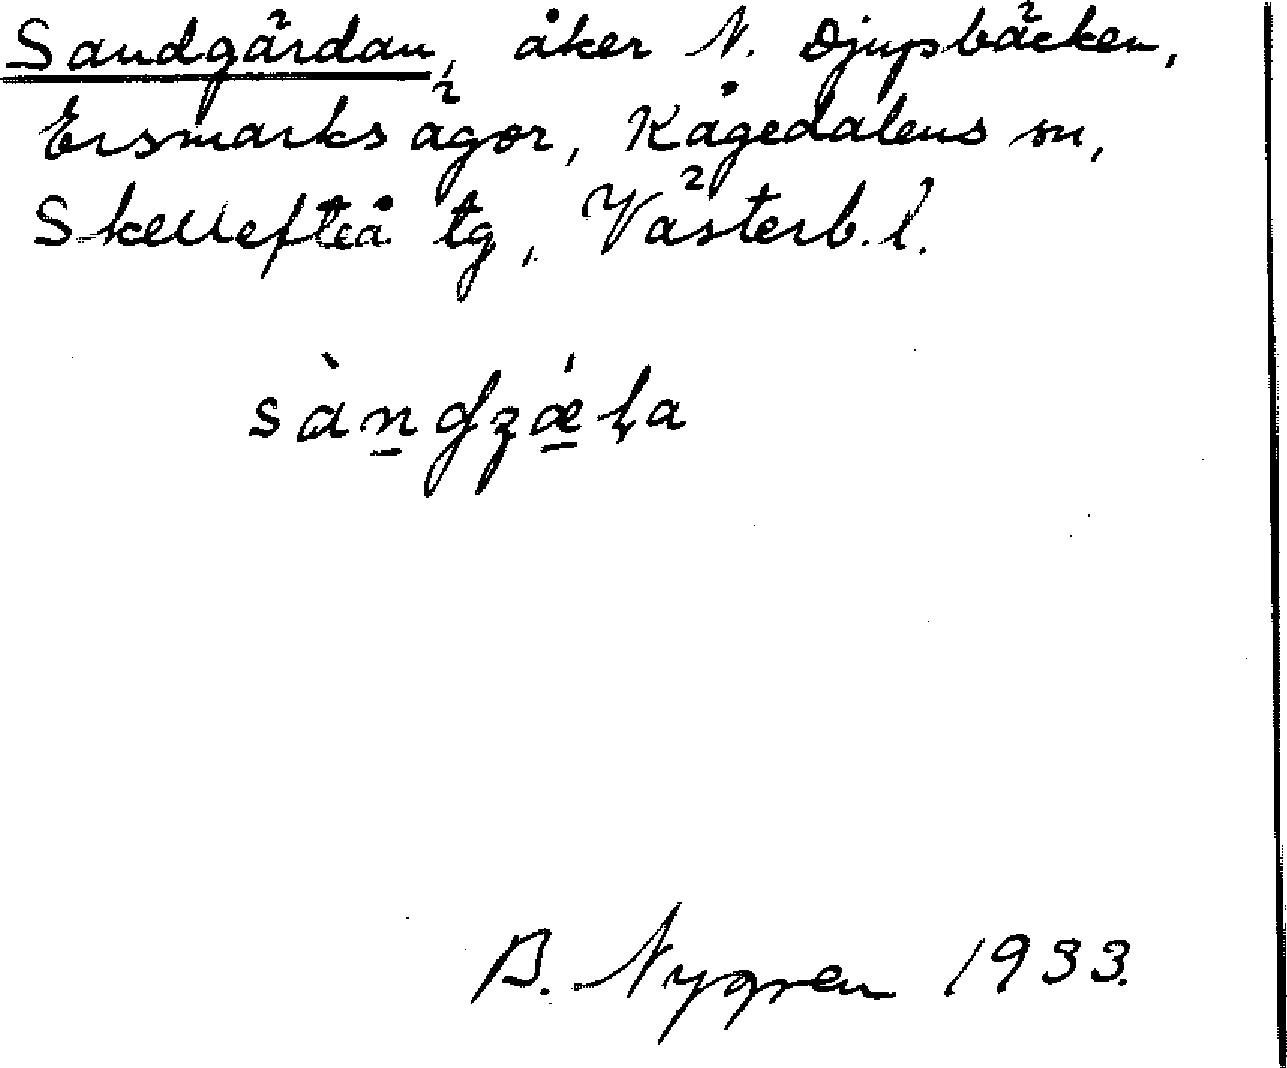 Sandgärdan, åker N. Djupsbäcken,
Ersmarks ägor, Kågedalens sn,
Skellefteå tg, Västerb. l.
B. Nygren 1933.